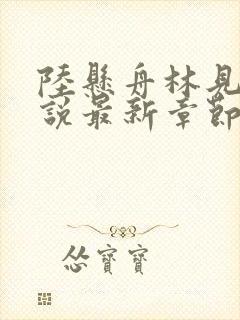 陸懸舟林見
說最新章節
怂寶寶